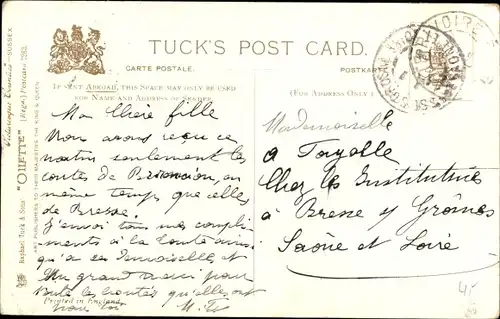 TUCK'S POST CARD.
CARTE POSTALE.
POSTKARTE
IF SENT ABROAD, THIS SPACE MAY ONLY BE USED
FOR NAME AND ADDRESS OF SENDER.
(FOR ADDRESS ONLY
Ma chère fille
Nous avons reçu ce
matin seulement les
cartes de Briançon, en
même temps que celles
de Bresse.
J'envoi tous mes compli-
ments à la
qu'a ses Demoiselle et
Un grand merci pour
toute les bontés qu'elles ont
pour toi
Mademoiselle
A Fayolle
Chez les Institutrices
à Bresse s/ Grosnes
Saône et Loire
Printed in England.
Raphael Tuck & Sons' "OILETTE" (Regd.) Postcard
Picturesque Counties SUSSEX
ART PUBLISHERS TO THEIR MAJESTIES THE KING & QUEEN.